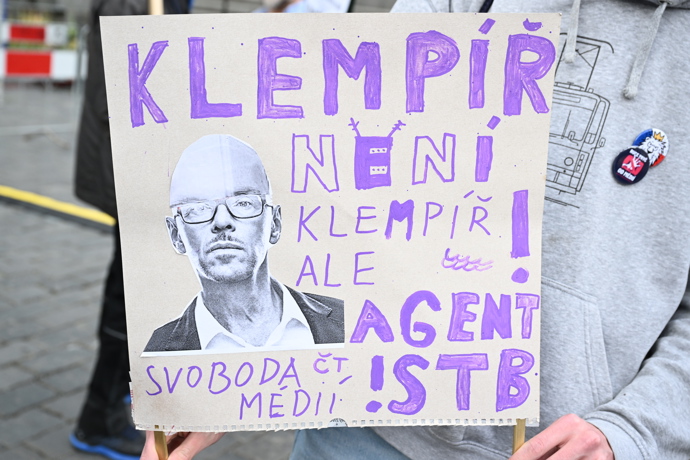 KLEMPÍŘ
NENÍ
KLEMPÍŘ
ALE
AGENT
!STB!
SVOBODA ČT
MÉDIÍ